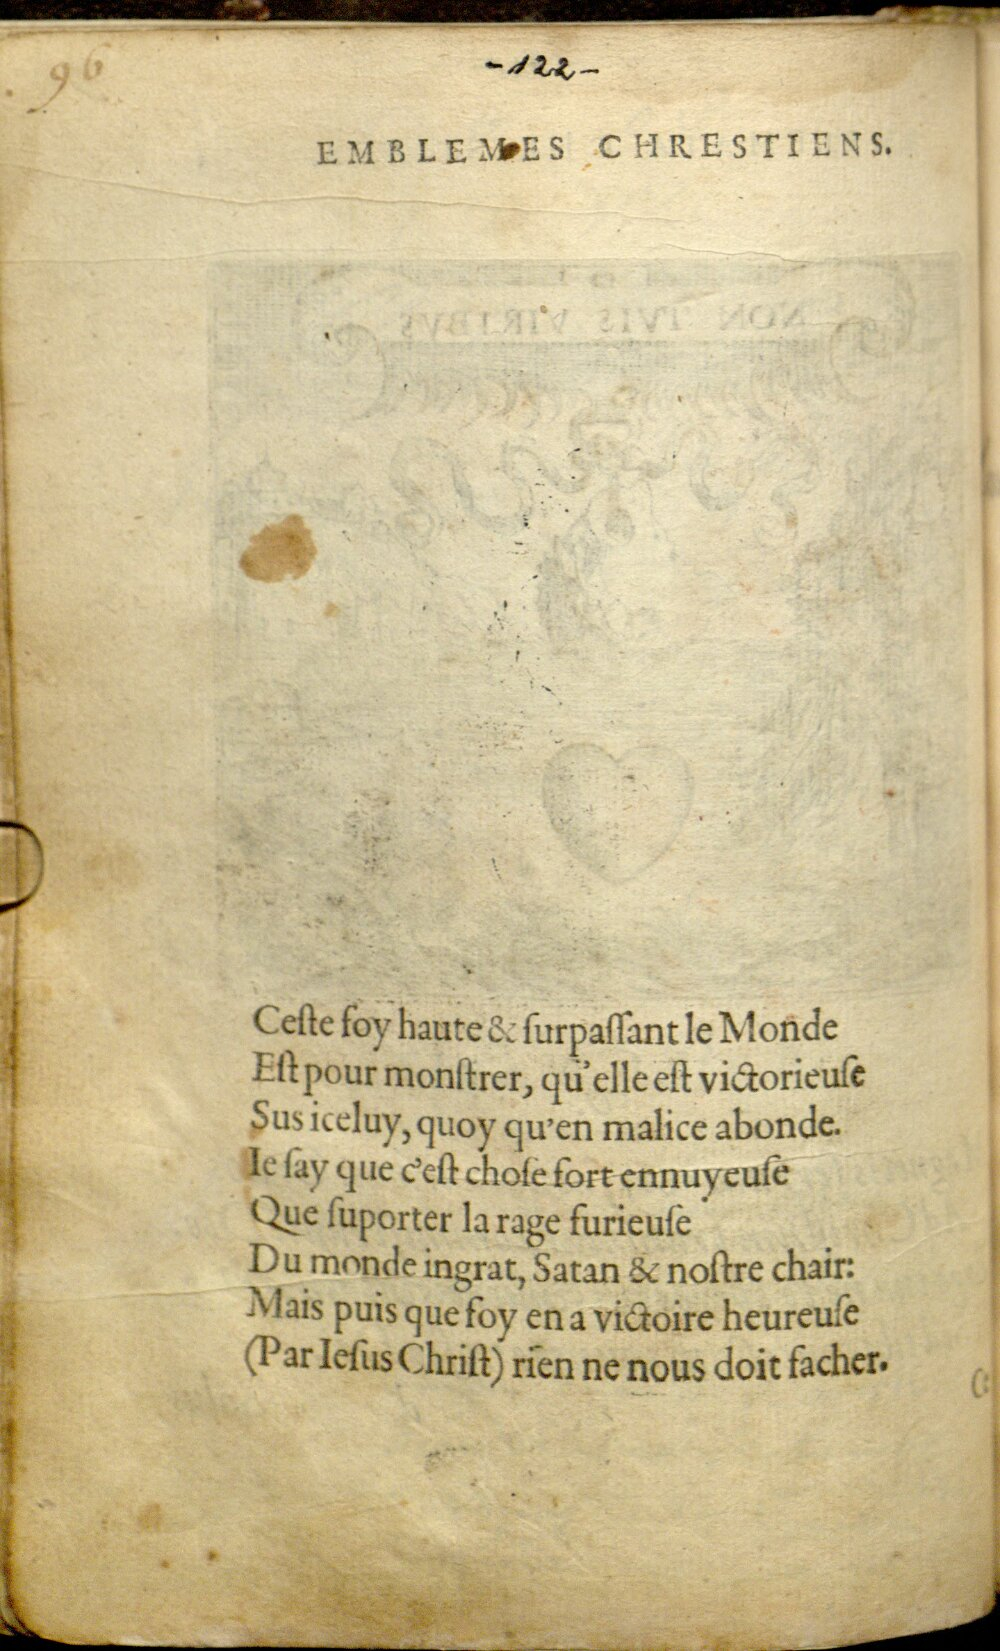 96
-122-
EMBLEMES CHRESTIENS.
NON TVIS VIRIBVS
Ceſte foy haute & ſurpaſſant le Monde
Eſt pour monſtrer, qu'elle eſt victorieuſe
Sus iceluy, quoy qu'en malice abonde.
Ie ſay que c'eſt choſe fort ennuyeuſe
Que ſuporter la rage furieuſe
Du monde ingrat, Satan & noſtre chair:
Mais puis que foy en a victoire heureuſe
(Par Ieſus Chriſt) rien ne nous doit facher.